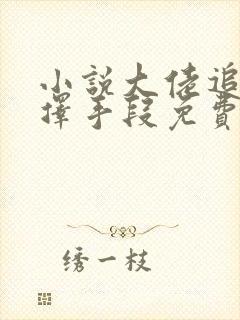 小說大佬追
擇手段免費
绣一枝